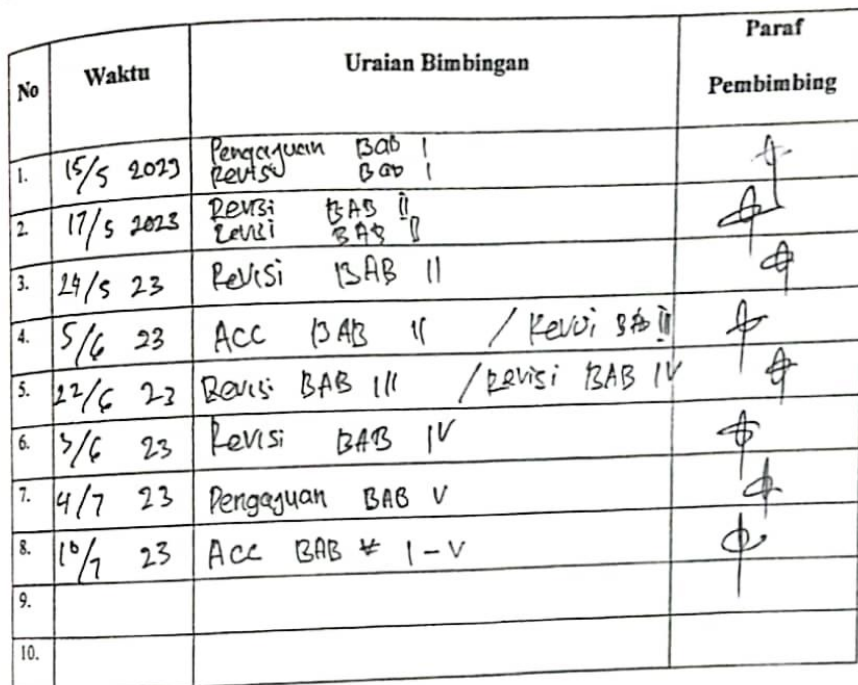 No Waktu Uraian Bimbingan Paraf Pembimbing
1. 15/5 2023 Pengajuan Bab I
Revisi Bab I
2. 17/5 2023 Revisi BAB II
Revisi BAB II
3. 24/5 23 Revisi BAB II
4. 5/6 23 ACC BAB II / Revisi BAB III
5. 22/6 23 Revisi BAB III / Revisi BAB IV
6. /6 23 Revisi BAB IV
7. 4/7 23 Pengajuan BAB V
8. 10/7 23 ACC BAB I - V
9.
10.